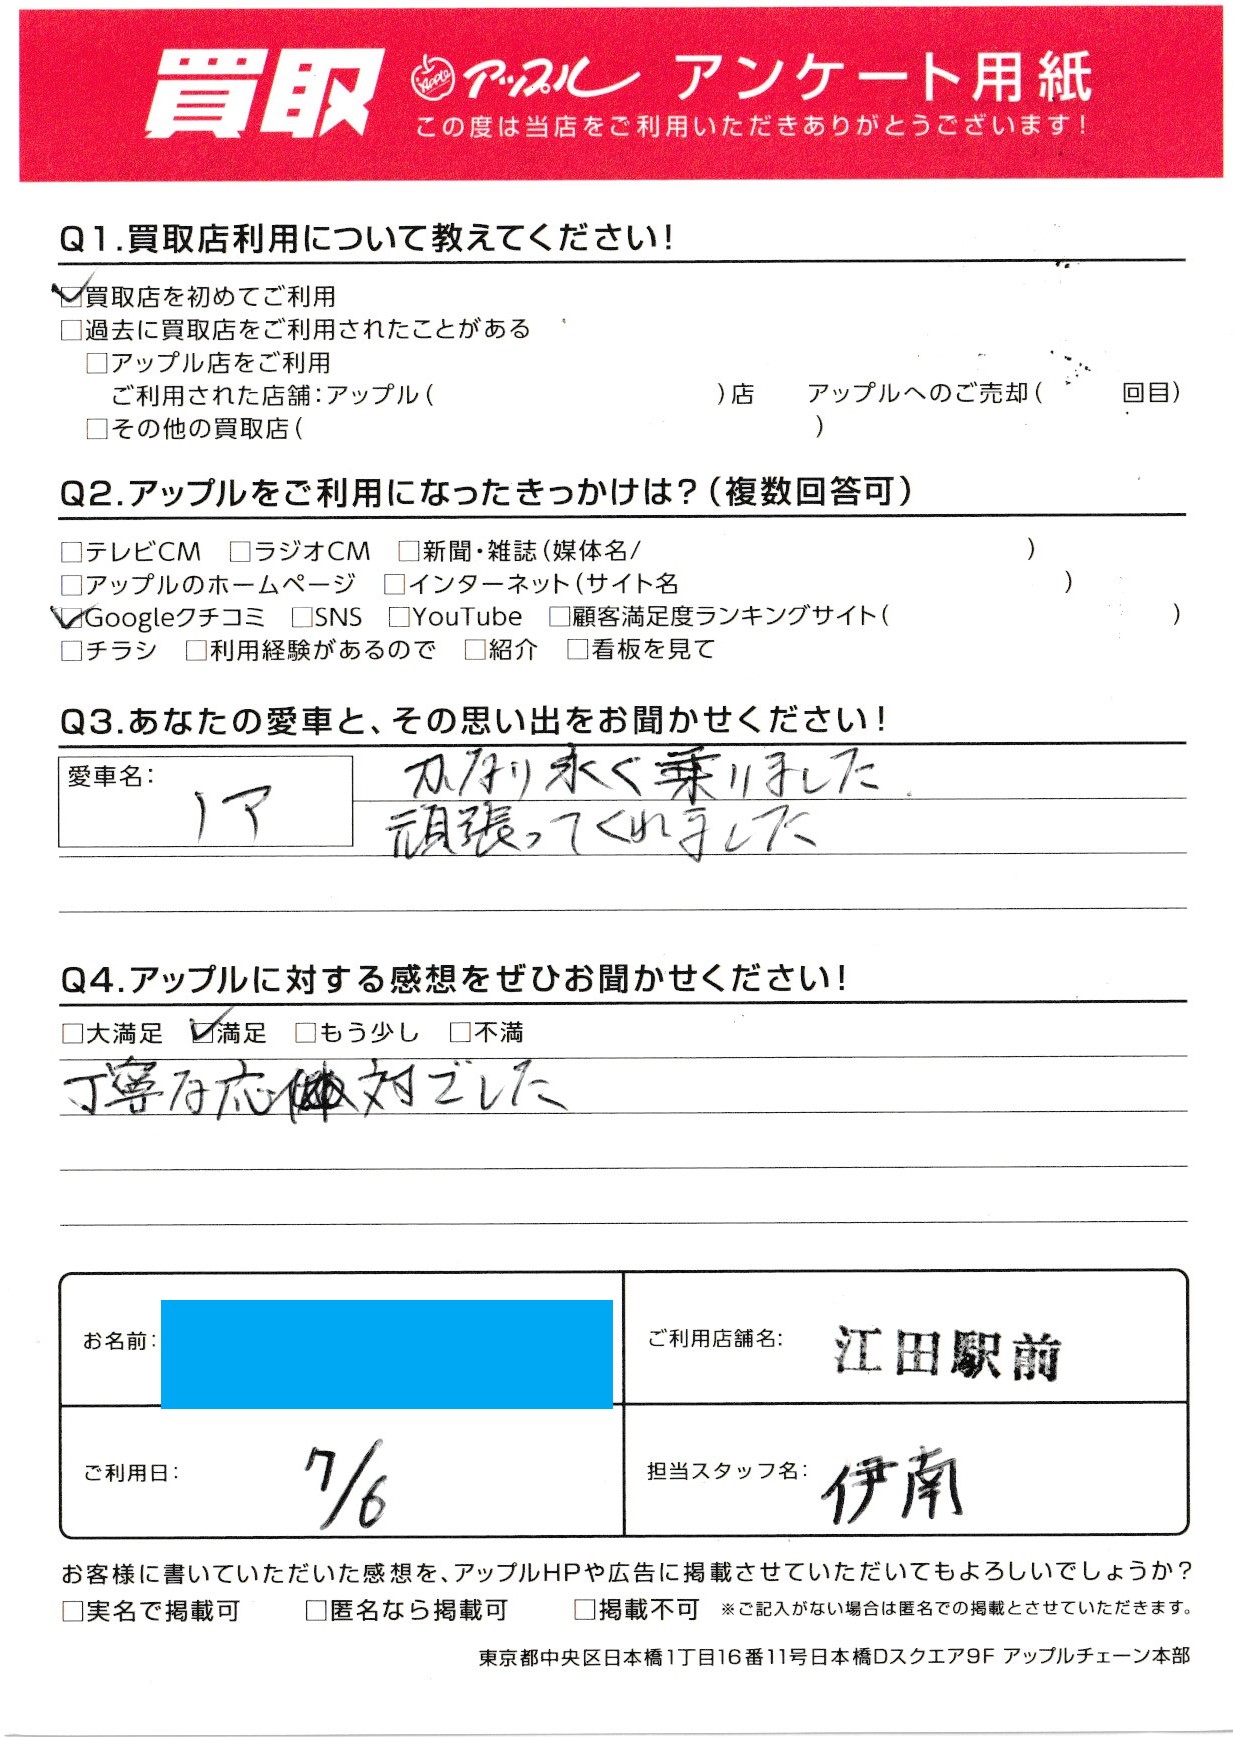 買取 Apple アップル アンケート用紙
この度は当店をご利用いただきありがとうございます!
Q1.買取店利用について教えてください!
☑買取店を初めてご利用
□過去に買取店をご利用されたことがある
□アップル店をご利用
ご利用された店舗:アップル( )店 アップルへのご売却( 回目)
□その他の買取店( )
Q2.アップルをご利用になったきっかけは?(複数回答可)
□テレビCM □ラジオCM □新聞・雑誌(媒体名/ )
□アップルのホームページ □インターネット(サイト名 )
☑Googleクチコミ □SNS □YouTube □顧客満足度ランキングサイト( )
□チラシ □利用経験があるので □紹介 □看板を見て
Q3.あなたの愛車と、その思い出をお聞かせください!
愛車名: ノア
かなり永く乗りました
頑張ってくれました
Q4.アップルに対する感想をぜひお聞かせください!
□大満足 ☑満足 □もう少し □不満
丁寧な応対でした
お名前:
ご利用店舗名: 江田駅前
ご利用日: 7/6
担当スタッフ名: 伊南
お客様に書いていただいた感想を、アップルHPや広告に掲載させていただいてもよろしいでしょうか?
□実名で掲載可 □匿名なら掲載可 □掲載不可 ※ご記入がない場合は匿名での掲載とさせていただきます。
東京都中央区日本橋1丁目16番11号日本橋Dスクエア9F アップルチェーン本部